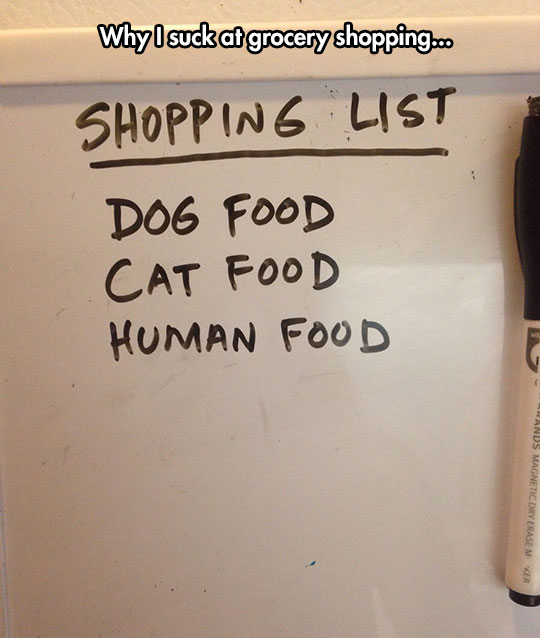 Why I suck at grocery shopping...
SHOPPING LIST
DOG FOOD
CAT FOOD
HUMAN FOOD
MAGNETIC DRY ERASE